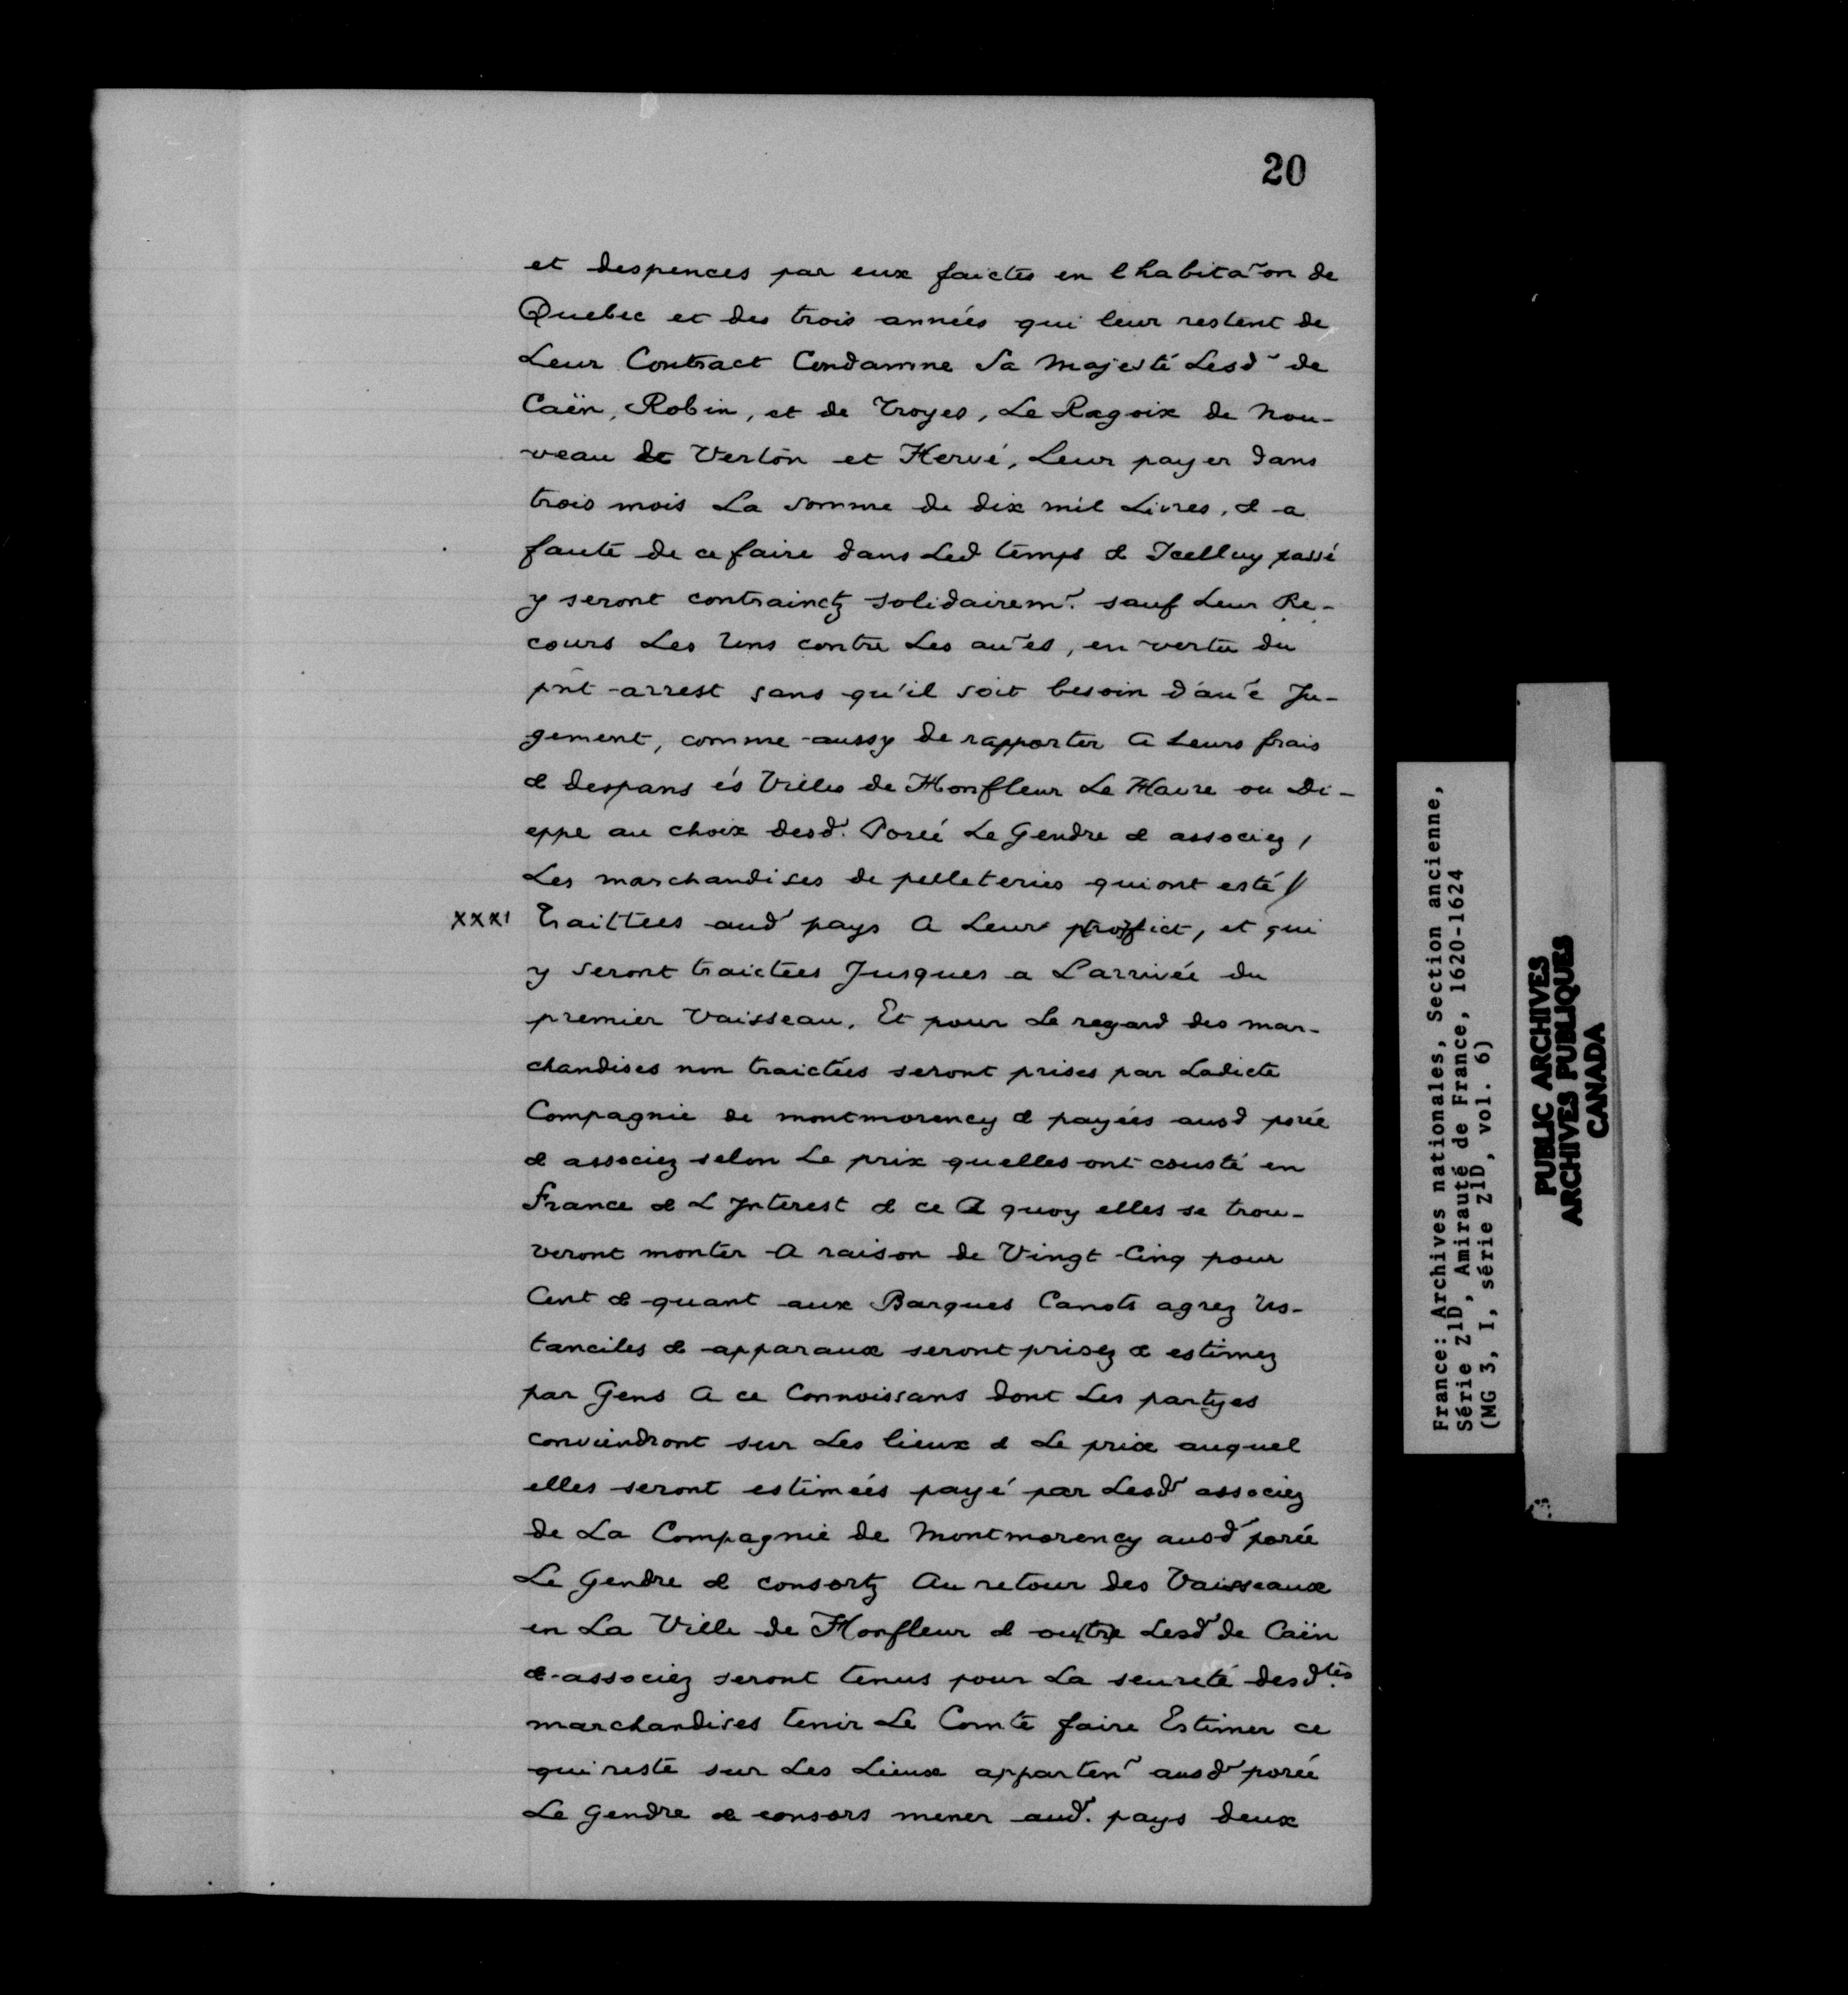 20
et despences par eux faictes en lhabita~on de
Quebec et des trois années qui leur restent de
Leur Contract Condamne Sa Majesté Lesd~ de
Caën, Robin, et de Troyes, Le Ragoix de Nou-
veau de Verton et Hervé, Leur payer dans
trois mois La somme de dix mil Livres, & a
faute de ce faire dans Led temps & Icelluy passé
y seront contrainctz solidairem~. sauf Leur Re-
cours Les Uns contre Les au~es, en vertu du
pnt arrest sans qu'il soit besoin d'au~e Ju-
gement, comme aussy de rapporter A Leurs frais
& despans és Villes de Honfleur Le Havre ou Di-
eppe au choix desd. Porée Le Gendre & associez,
Les marchandises de pelleteries qui ont esté //
XXXI Traittees aud pays A Leur proffict, et qui
y seront traictees Jusques a L'arrivée du
premier Vaisseau. Et pour Le regard des mar-
chandises non traictées seront prises par Ladicte
Compagnie de montmorency & payées ausd porée
& associez selon Le prix quelles ont cousté en
France & L Interest & ce A quoy elles se trou-
veront monter A raison de Vingt-Cinq pour
Cent & quant aux Barques Canots agrez Us-
tanciles & apparaux seront prisez & estimez
par Gens A ce Connoissans dont Les partyes
conviendront sur Les lieux & Le prix auquel
elles seront estimées payé par Lesd~ associez
de La Compagnie de Montmorency ausd~ porée
Le Gendre & consortz Au retour des Vaisseaux
en La Ville de Honfleur & outre Lesd~ de Caën
& associez seront tenus pour La seureté desd.tes
marchandises tenir Le Comte faire Estimer ce
qui reste sur Les Lieux apparten~ ausd~ porée
Le Gendre & consors mener aud. pays deux
France: Archives nationales, Section ancienne,
Série Z1D, Amirauté de France, 1620-1624
(MG 3, I, série Z1D, vol. 6)
PUBLIC ARCHIVES
ARCHIVES PUBLIQUES
CANADA